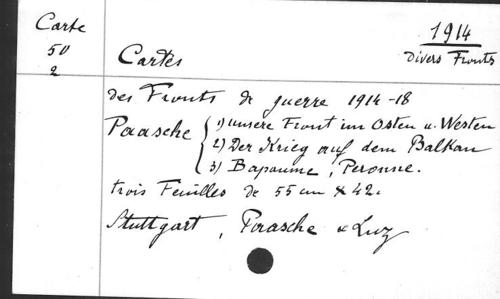 Carte
50
2
Cartes
1914
Divers Fronts
des Fronts de guerre 1914-18
Paasche { 1) unsere Front im Osten u. Westen
2) Der Krieg auf dem Balkan
3) Bapaume, Peronne.
trois Feuilles de 55 cm x 42.
Stuttgart, Paasche & Luz